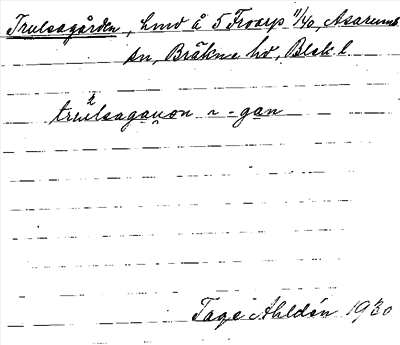 Trulsagården, hmd å 5 Froarp 11/40, Asarums
sn, Bräkne hd, Blek. l
trulsagauon ~ -gan
Tage Ahldén 1930